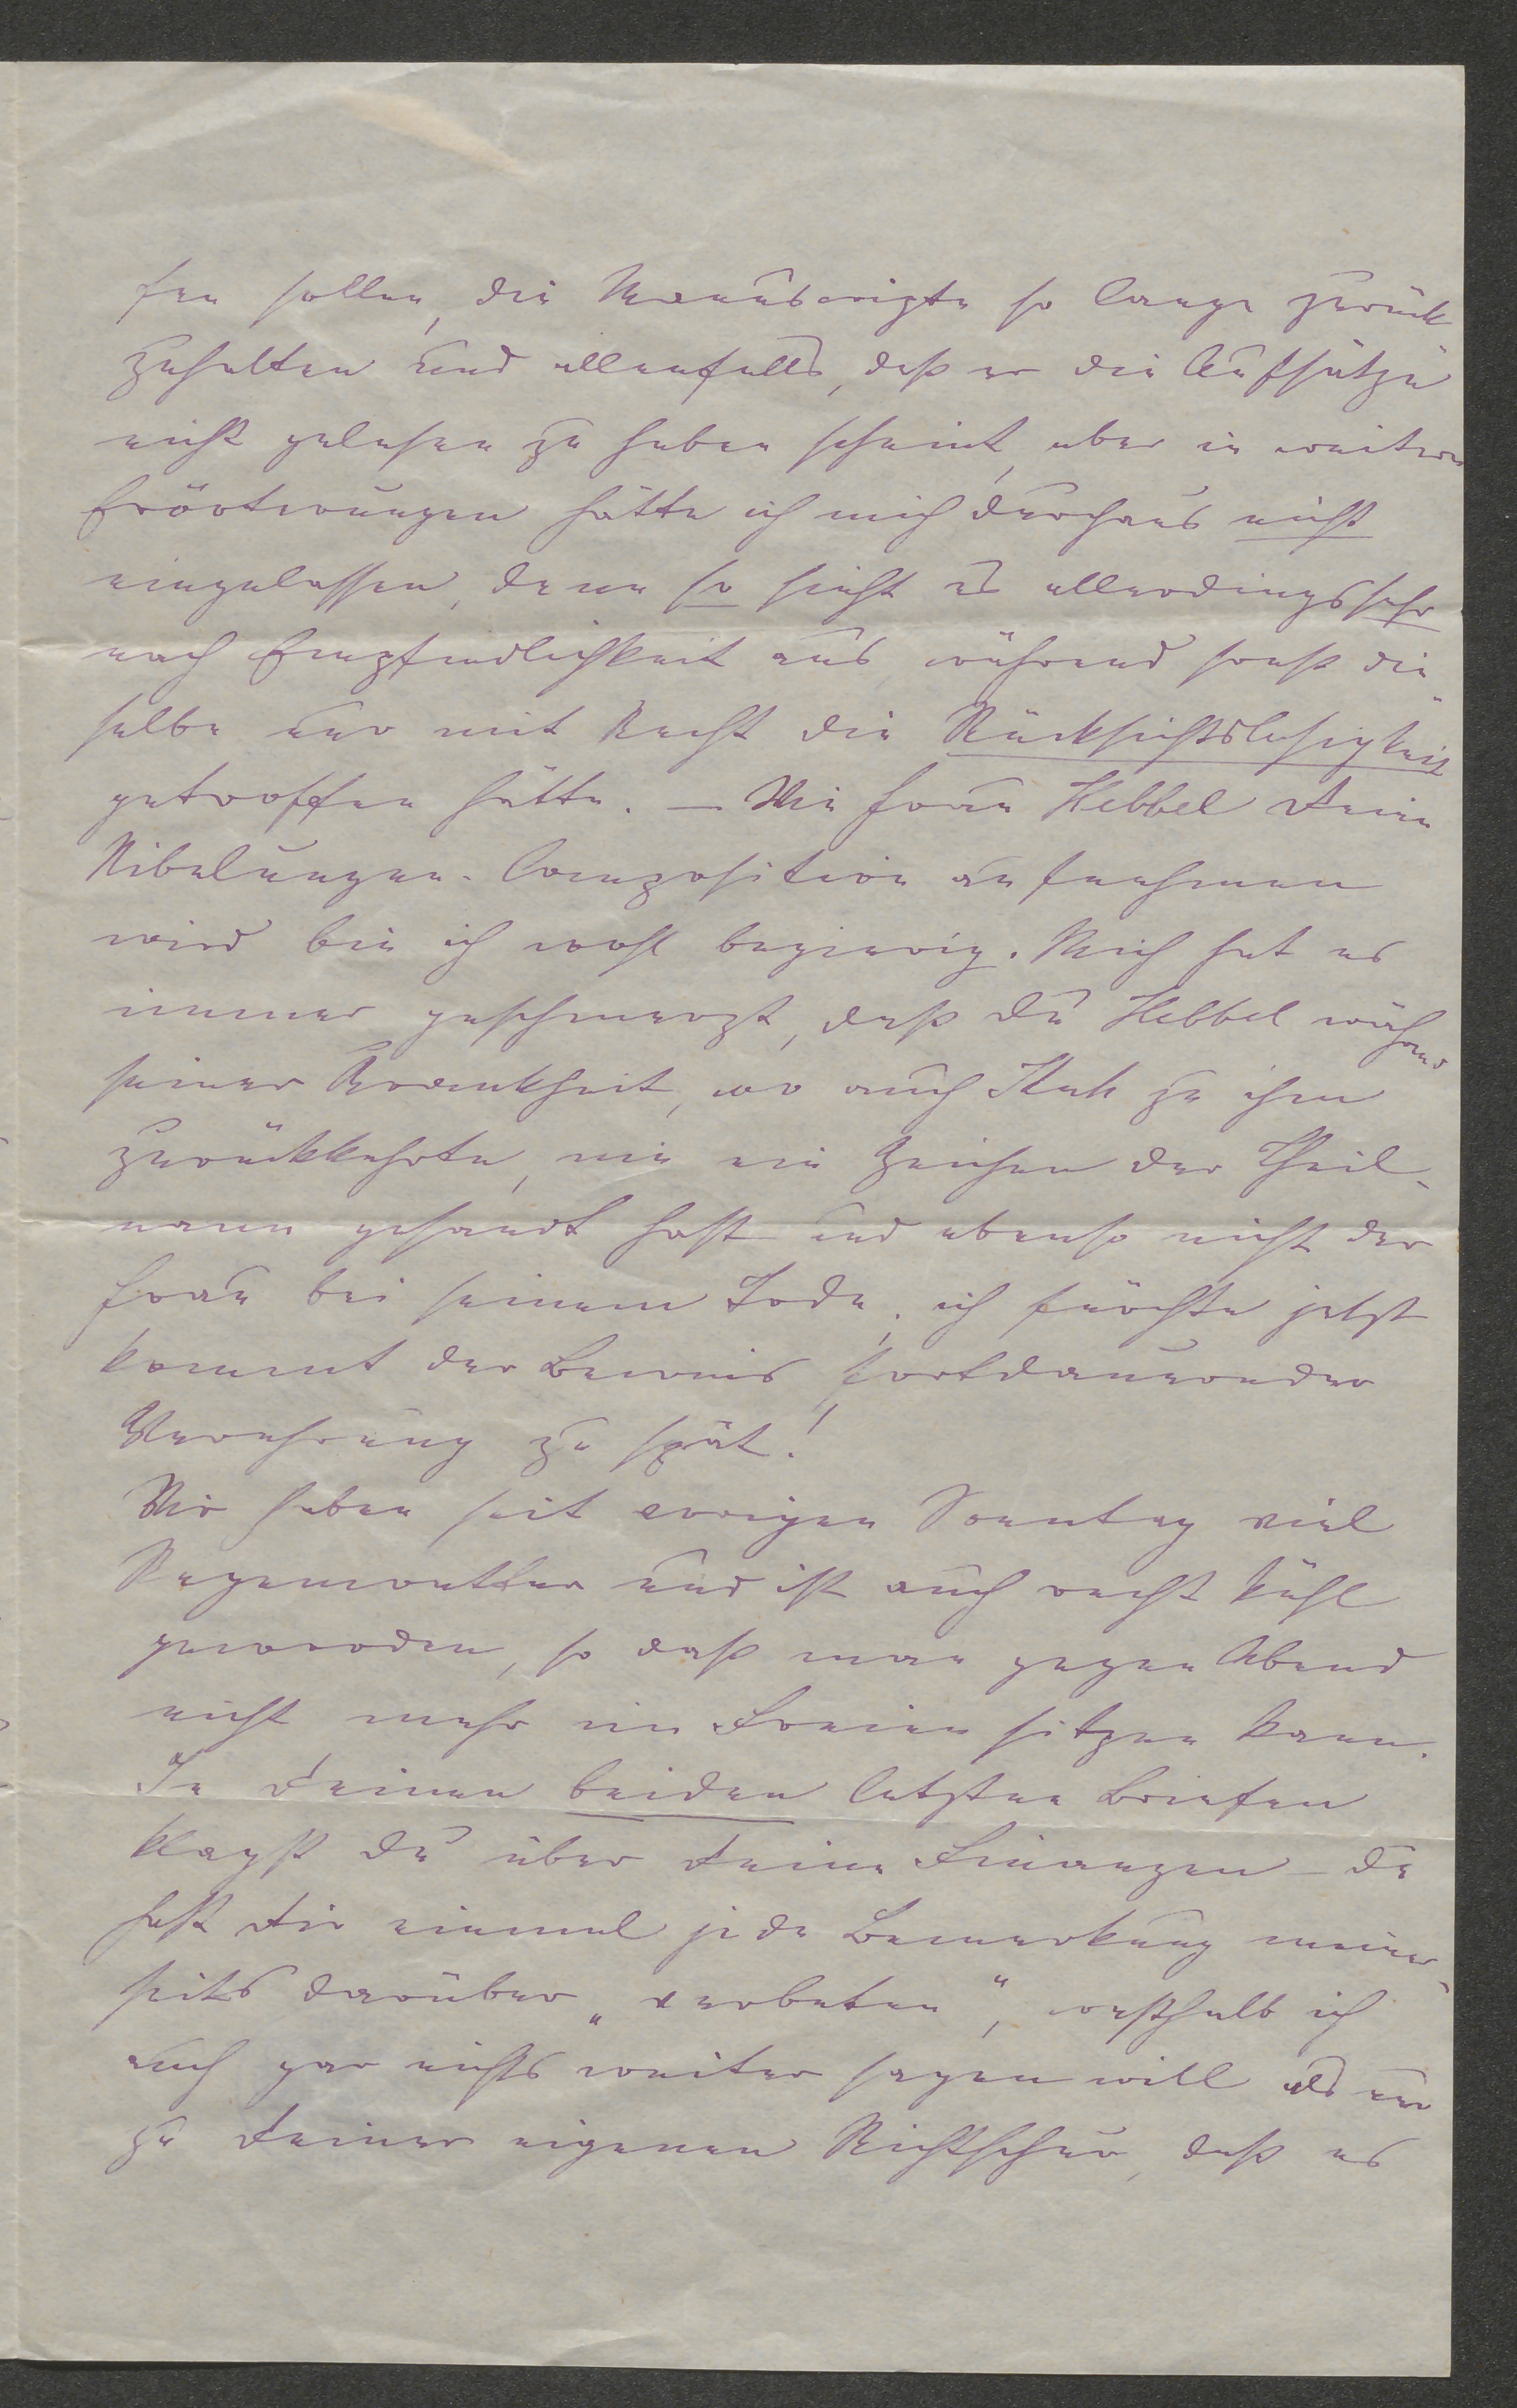 fen sollen, die Manuscripte so lange zurück
zuhalten und allenfalls, daß er die Aufsätze
nicht gelesen zu haben scheint, aber in weitere
Erörterungen hätte ich mich durchaus nicht
eingelassen, denn so sieht es allerdings sehr
nach Empfindlichkeit aus, während sonst die-
selbe nur mit Recht die Rücksichtslosigkeit
getroffen hätte. – Wie Frau Hebbel Deine
Nibelungen-Composition aufnehmen
wird bin ich wohl begierig. Mich hat es
immer geschmerzt, daß Du Hebbel während
seiner Krankheit, wo auch Kuh zu ihm
zurückkehrte, nie ein Zeichen der Theil-
name gesandt hast und ebenso nicht der
Frau bei seinem Tode, ich fürchte jetzt
kommt der Beweis fortdauernder
Verehrung zu spät!
Wir haben seit vorigen Sonntag viel
Regenwetter und ist auch recht kühl
geworden, so daß man gegen Abend
nicht mehr im Freien sitzen kann.
In Deinen beiden letzten Briefen
klagst Du über Deine Finanzen – Du
hast Dir einmal jede Bemerkung meiner-
seits darüber „verbeten", weßhalb ich
auch gar nichts weiter sagen will als nur
zu Deiner eigenen Richtschnur, daß es